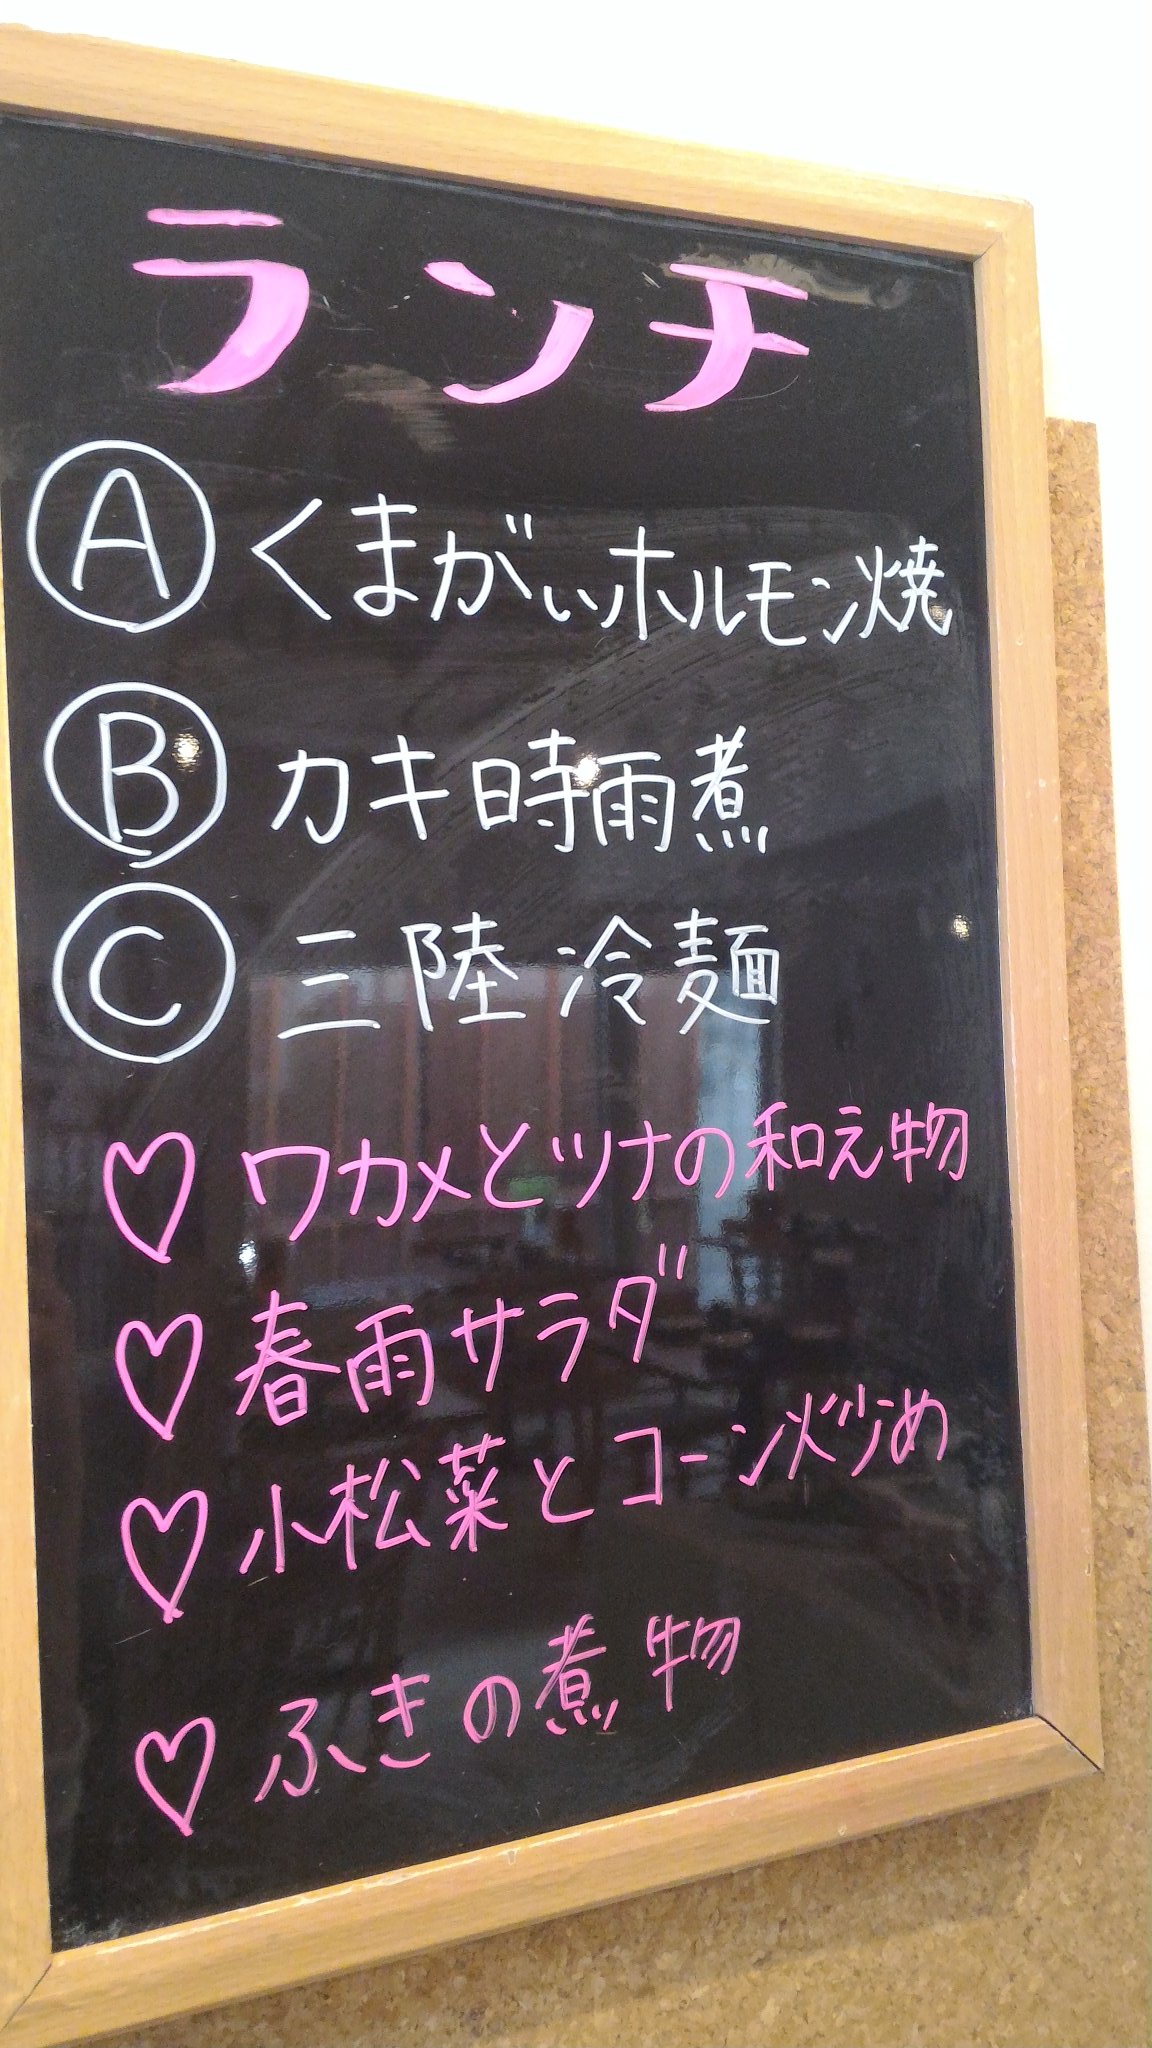 ランチ
Ⓐ くまがいホルモン焼
Ⓑ カキ時雨煮
Ⓒ 三陸冷麺
♡ ワカメとツナの和え物
♡ 春雨サラダ
♡ 小松菜とコーン炒め
♡ ふきの煮物